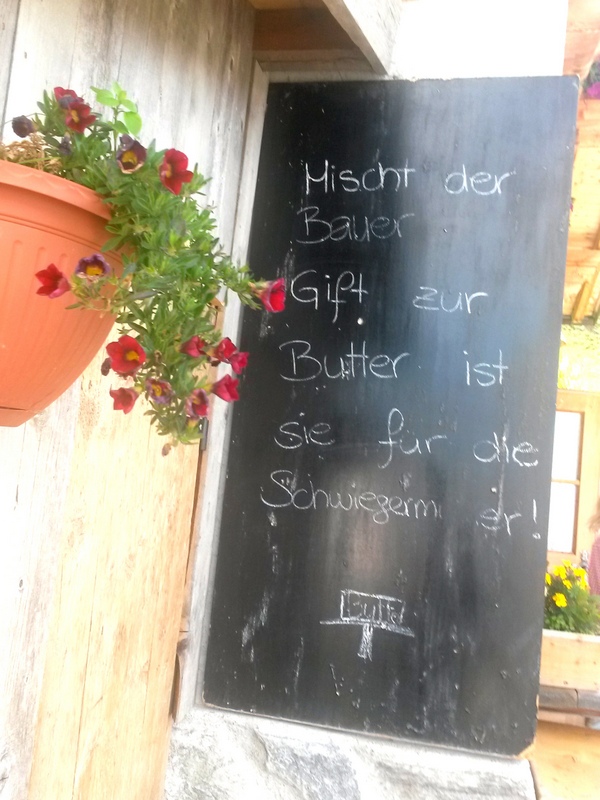 Mischt der
Bauer
Gift zur
Butter ist
sie für die
Schwiegerm er!
Butter